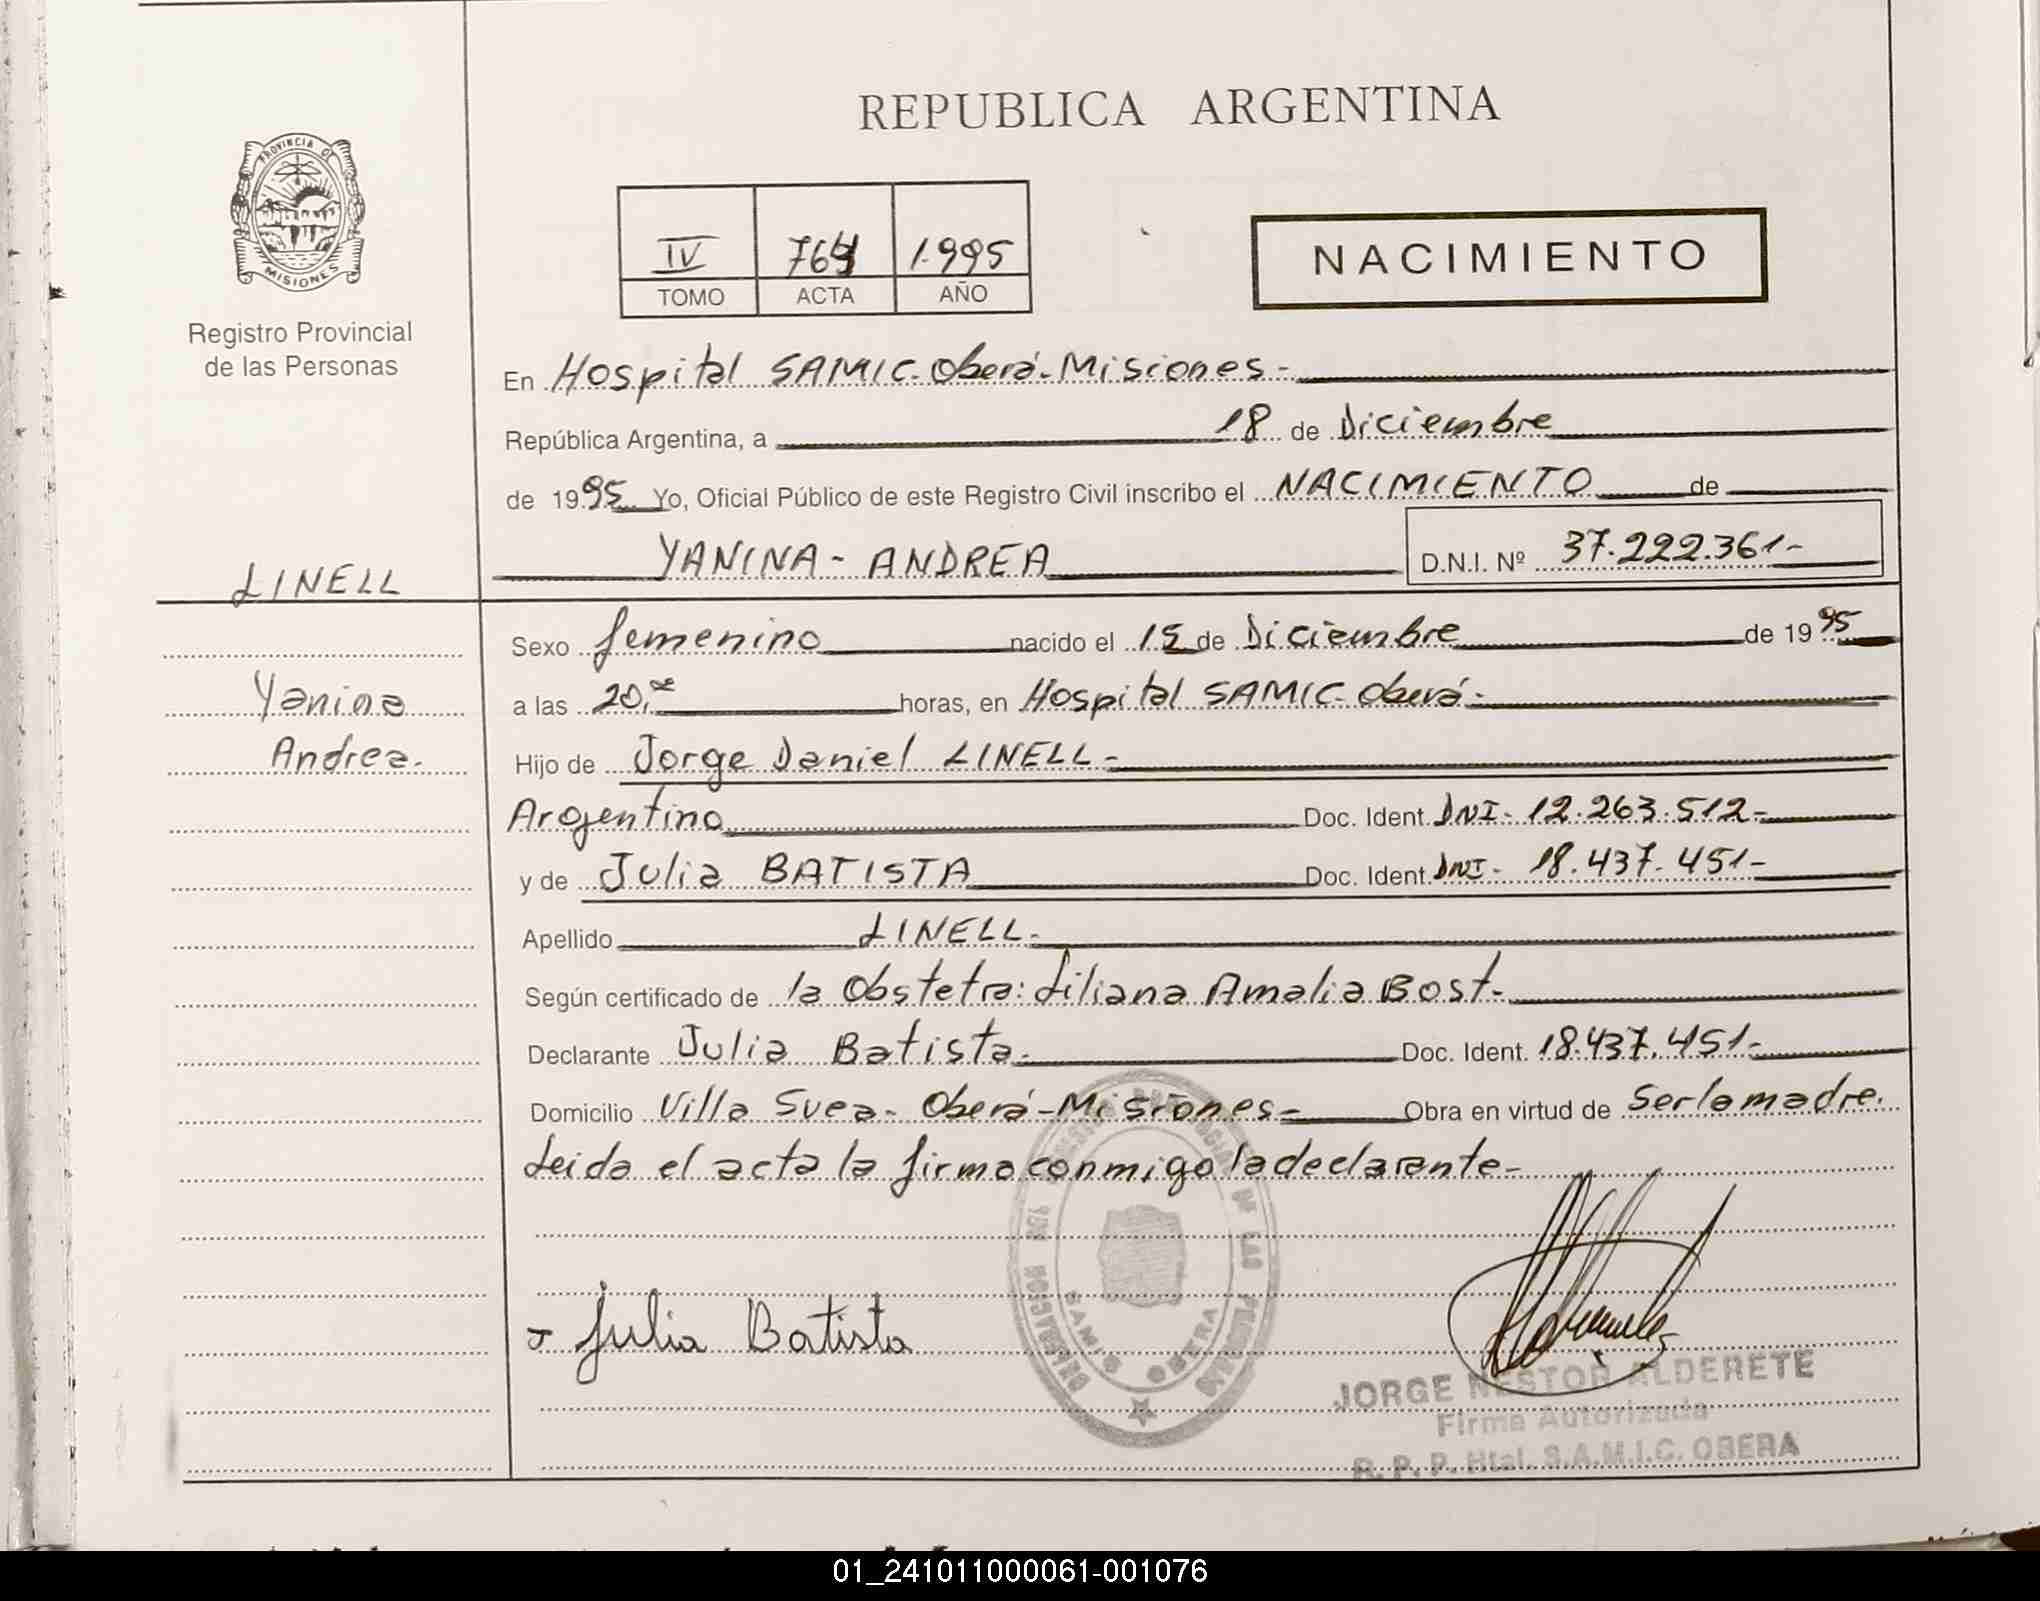 REPUBLICA ARGENTINA
PROVINCIA DE
MISIONES
Registro Provincial
de las Personas
IV 764 1.995
TOMO ACTA AÑO
NACIMIENTO
En Hospital SAMIC-Oberá-Misiones-
República Argentina, a 18 de Diciembre
de 1995 Yo, Oficial Público de este Registro Civil inscribo el NACIMIENTO de
YANINA-ANDREA D.N.I. Nº 37.222.361-
LINELL
Yanina
Andrea.
Sexo femenino nacido el 15 de Diciembre de 1995
a las 20, horas, en Hospital SAMIC-Oberá-
Hijo de Jorge Daniel LINELL-
Argentino Doc. Ident. DNI- 12.263.512-
y de Julia BATISTA Doc. Ident. DNI- 18.437.451-
Apellido LINELL-
Según certificado de la Obstetra: Liliana Amalia Bost-
Declarante Julia Batista- Doc. Ident. 18.437.451-
Domicilio Villa Svea- Oberá-Misiones- Obra en virtud de Ser la madre.
Leida el acta la firma conmigo la declarante-
Julia Batista
DE LAS PERSONAS
OBERA
JORGE NESTOR ALDERETE
Firma Autorizada
R. P. P. Htal. S.A.M.I.C. OBERA
01_241011000061-001076